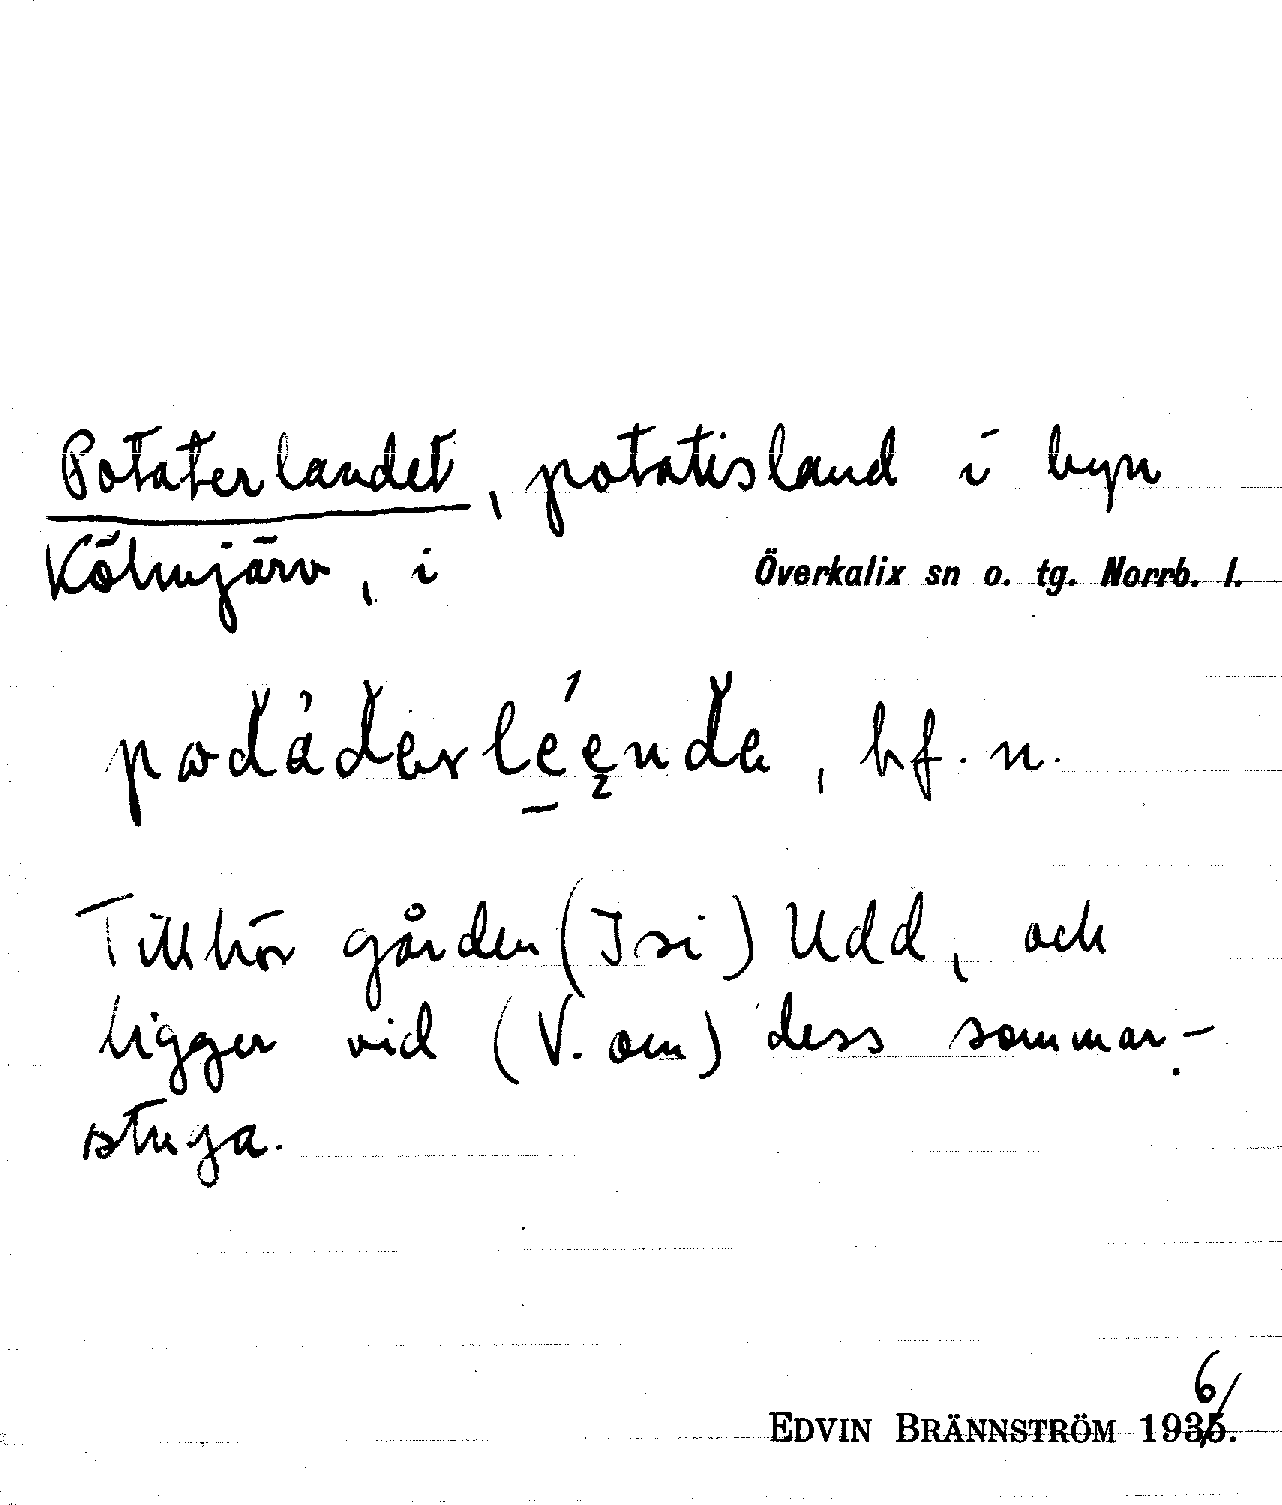 Potaterlandet, potatisland i byn
Kölmjärv, i Överkalix sn o. tg. Norrb. l.
bf. n.
Tillhör gården (Isi) Udd, och
ligger vid (V. om) dess sommar-
stuga.
6
EDVIN BRÄNNSTRÖM 1935.